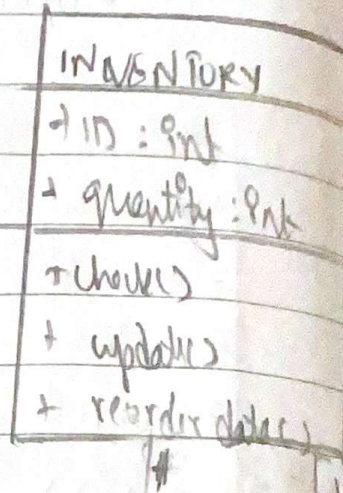 INVENTORY
+ ID : int
+ quantity : int
+ check()
+ update()
+ reorder date()